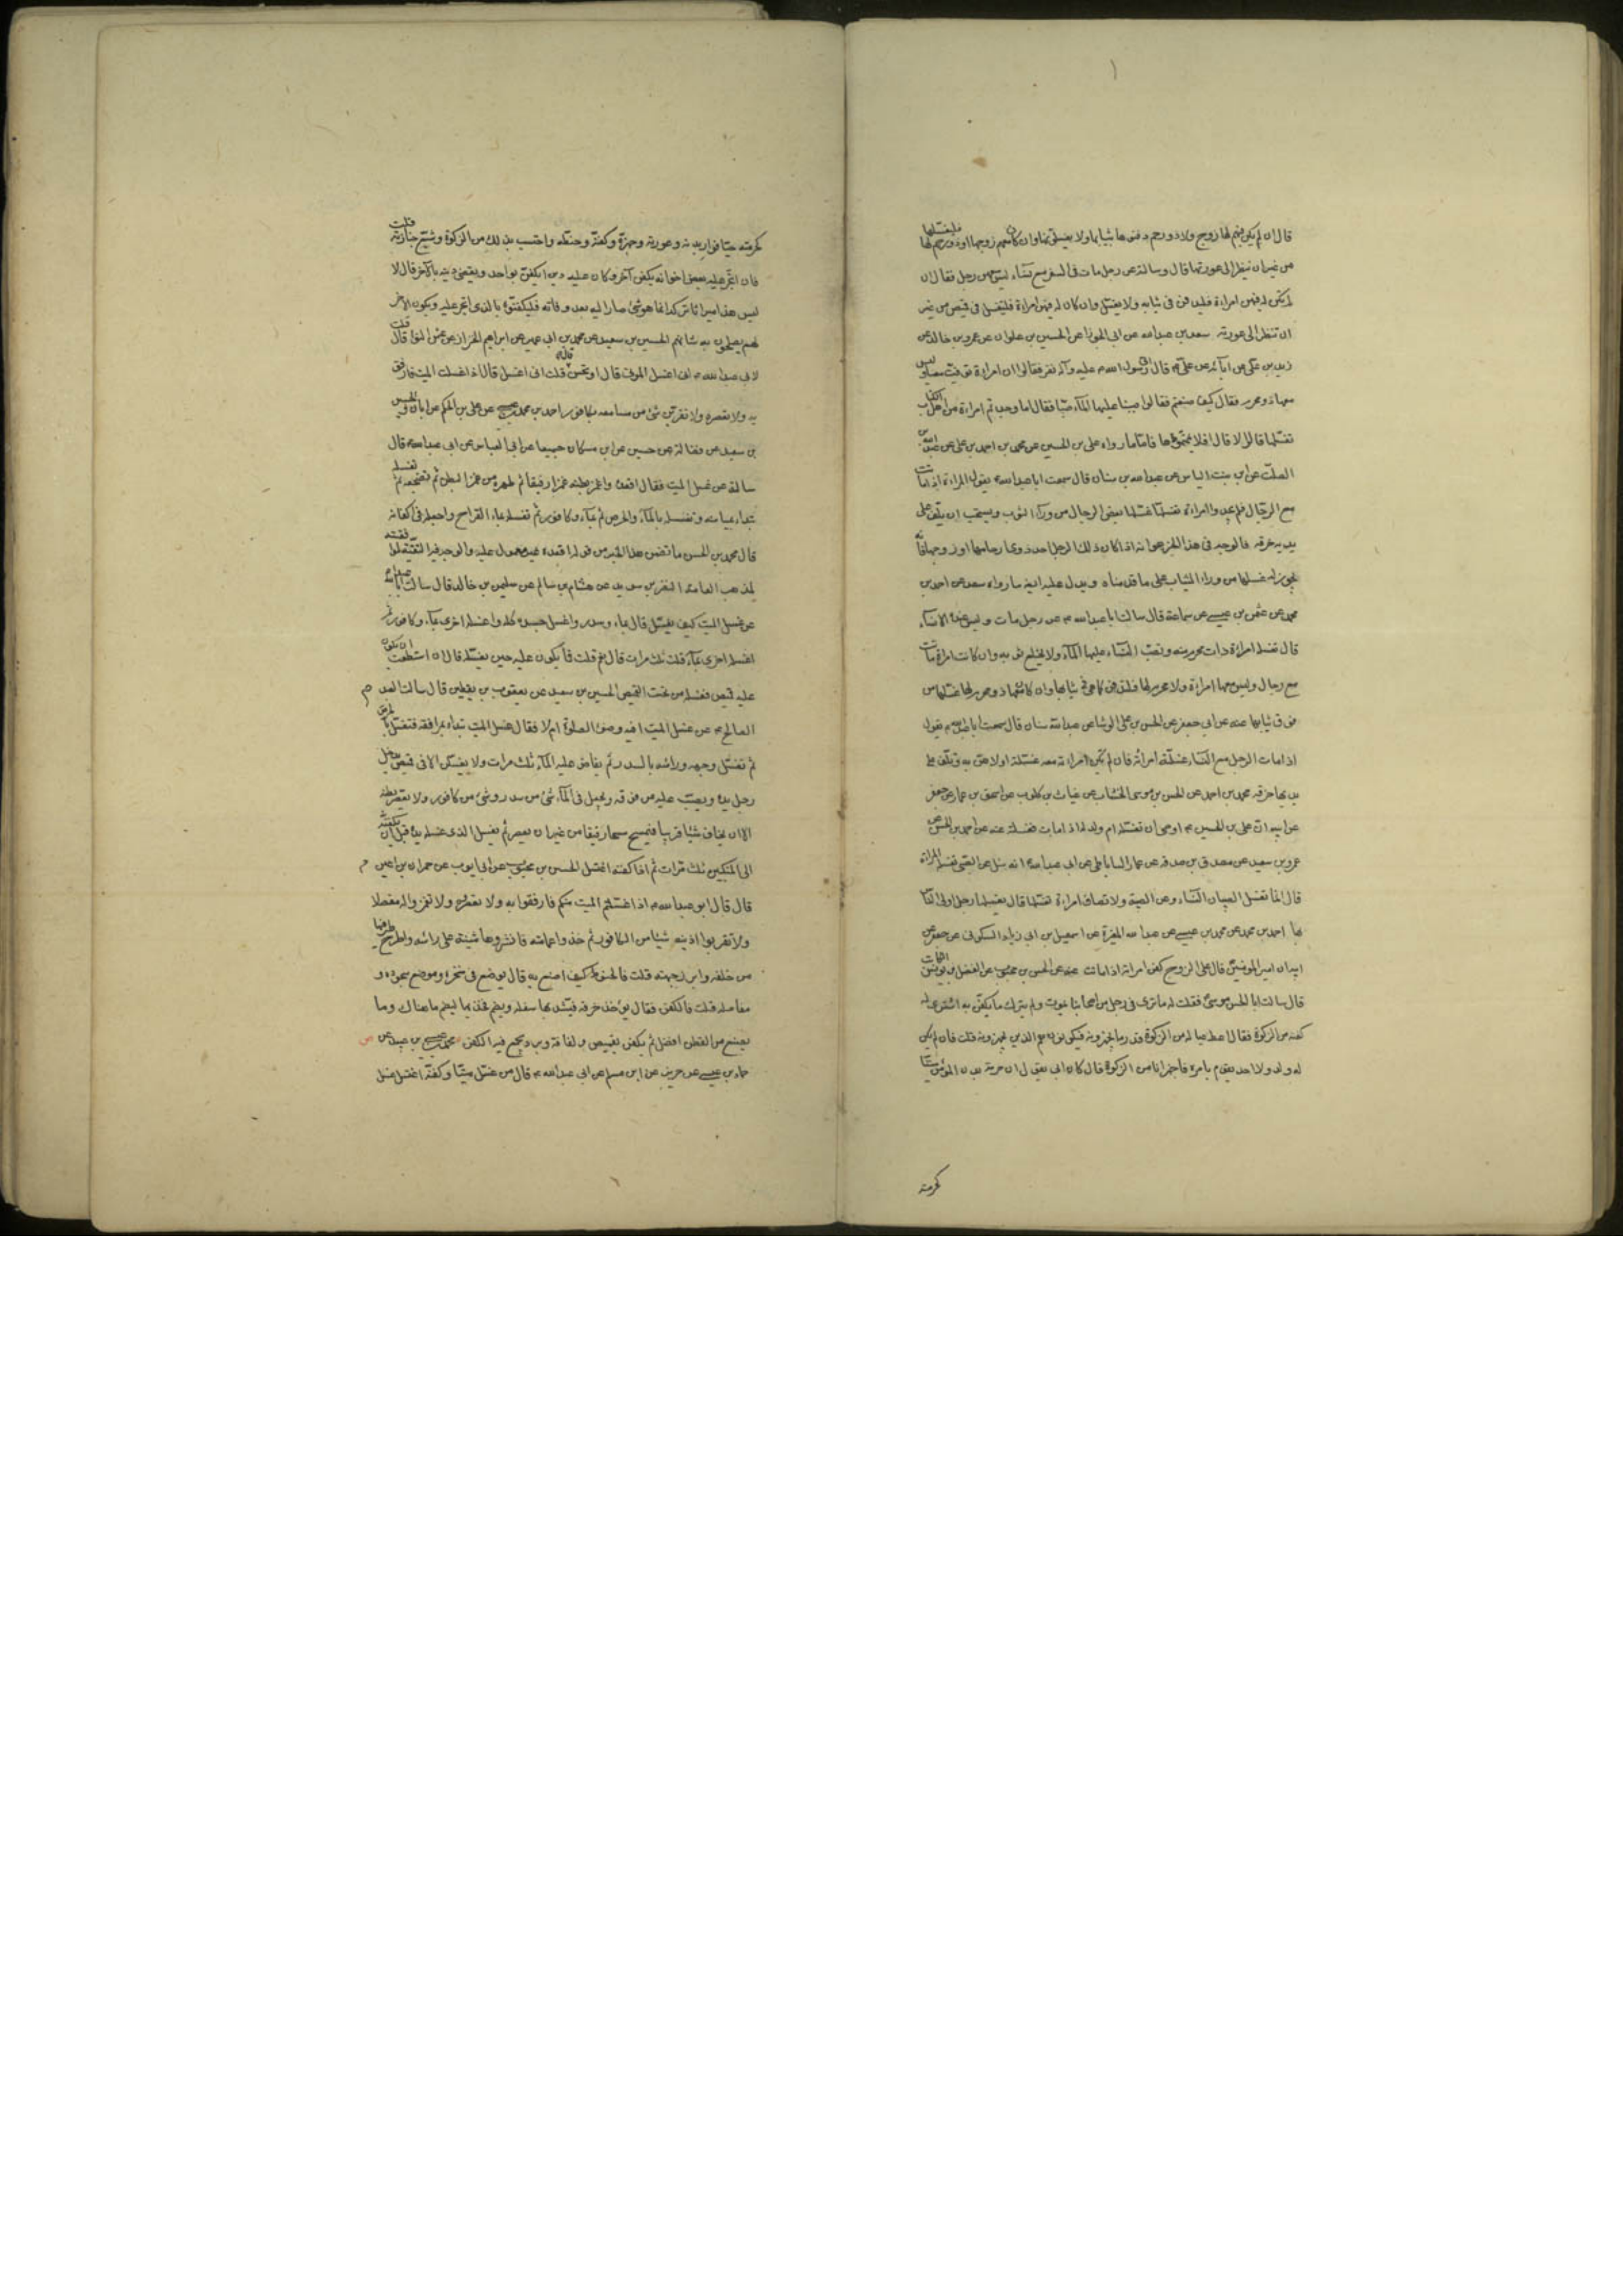 قال ان لم يكن فيهم لها زوج ولا ذو رحم دفنوها بثيابها ولا يغسلونها وان كان معهم زوجها او ذو رحم لها فليغسلها
من غير ان ينظر الى عورتها قال وسالته عن رجل مات في السفر مع نساء ليس معهن رجل فقال ان
لم يكن له فيهن امراءة فليدفن في ثيابه ولا يغسل وان كان له فيهن امراءة فليغسل في قميص من غير
ان تنظر الى عورته سعد بن عبدالله عن ابي الجوزا عن الحسين بن علوان عن عمرو بن خالد عن
زيد بن علي عن ابائه عن علي ع قال اتى رسول الله ص عليه وآله نفر فقالوا ان امراءة توفيت معنا وليس
معها ذو محرم فقال كيف صنعتم فقالوا صببنا عليها الماء صبا فقال اما وجدتم امراءة من اهل الكتاب
تغسلها قالوا لا قال افلا يمموها فاما ما رواه علي بن الحسين عن محمد بن احمد بن علي عن عبدالله بن
الصلت عن ابن بنت الياس عن عبدالله بن سنان قال سمعت ابا عبدالله ع يقول المراءة اذا ماتت
مع الرجال فلم يجدوا امراءة تغسلها غسلها بعض الرجال من وراء الثوب ويستحب ان يلف على
يديه خرقة فالوجه في هذا الخبر هو انه اذا كان ذلك الرجل احد ذوي ارحامها او زوجها فانه
يجوز له غسلها من وراء الثياب على ما قدمناه ويدل عليه ايضا ما رواه سعد عن احمد بن
محمد عن عثمن بن عيسى عن سماعة قال سالت ابا عبدالله ع عن رجل مات وليس عنده الا نساء
قال تغسله امراءة ذات محرم منه وتصب النساء عليها الماء ولا تخلع ثوبه وان كانت امراة ماتت
مع رجال وليس معها امراءة ولا محرم لها فلتدفن كما هي في ثيابها وان كان معها ذو محرم لها غسلها من
فوق ثيابها عنه عن ابي جعفر عن الحسن بن علي الوشا عن عبدالله بن سنان قال سمعت ابا عبدالله ع يقول
اذا مات الرجل مع النساء غسلته امراته فان لم تكن امراته معه غسلته اولاهن به وتلف على
يديها خرقه محمد بن احمد عن الحسن بن موسى الخشاب عن غياث بن كلوب عن اسحق بن عمار عن جعفر
عن ابيه ان علي بن الحسين ع اوصى ان تغسله ام ولد له اذا مات فغسلته عنه عن احمد بن الحسن عن
عمرو بن سعيد عن مصدق بن صدقه عن عمار الساباطي عن ابي عبدالله ع انه سئل عن الصبي تغسله المراة
قال انما تغسل الصبيان النساء وعن الصبية ولا تصاب امراءة تغسلها قال يغسلها رجل اولى الناس
بها احمد بن محمد عن محمد بن عيسى عن عبدالله المغيرة عن اسمعيل بن ابي زياد السكوني عن جعفر عن
ابيه ان امير المؤمنين قال على الزوج كفن امراته اذا ماتت عنه عن الحسن بن محبوب عن الفضل بن يونس الكاتب
قال سالت ابا الحسن موسى فقلت له ما ترى في رجل من اصحابنا يموت ولم يترك ما يكفن به اشترى له
كفنه من الزكوة فقال اعط عياله من الزكوة قدر ما يجهزونه فيكونون هم الذين يجهزونه قلت فان لم يكن
له ولد ولا احد يقوم بامره فاجهزه انا من الزكوة قال كان ابي يقول ان حرمة بدن المؤمن ميتا
كحرمته
كحرمته حيا فوار بدنه وعورته وجهزه وكفنه وحنطه واحتسب بذلك من الزكوة وشيع جنازته قلت
فان اتجر عليه بعض اخوانه بكفن آخر وكان عليه دين ايكفن بواحد ويقضى دينه بالآخر قال لا
ليس هذا ميراثا تركه انما هو شئ صار اليه بعد وفاته فليكفنوه بالذي اتجر عليه ويكون الآخر
لهم يصلحون به شانهم الحسين بن سعيد عن محمد بن ابي عمير عن ابراهيم الخزاز عن عثمن النوا قال قلت
لابي عبدالله ع اني اغسل الموتى قال او تحسن قلت اني اغسل قال اذا غسلت الميت فارفق
به ولا تعصره ولا تقربن شئ من مسامعه بكافور احمد بن محمد بن عيسى عن علي بن الحكم عن ابان والحسين
بن سعيد عن فضالة عن حسين عن ابن مسكان جميعا عن ابي العباس عن ابي عبدالله ع قال
سالته عن غسل الميت فقال اقعده واغمز بطنه غمزا رفيقا ثم طهره من غمز البطن ثم تضجعه ثم تغسله
تبداء بميامنه وتغسله بالماء والحرض ثم بماء وكافور ثم تغسله بماء القراح واجعله في اكفانه
قال محمد بن الحسن ما تضمن هذا الخبر من قوله اقعده غير معمول عليه والوجه فيه التقية لموافقته
لمذهب العامة النضر بن سويد عن هشام بن سالم عن سليمن بن خالد قال سالت ابا عبدالله ع
عن غسل الميت كيف يغسل قال بماء وسدر واغسل جسده كله واغسله اخرى بماء وكافور ثم
اغسله اخرى بماء قلت ثلث مرات قال نعم قلت فما يكون عليه حين يغسله قال ان استطعت ان يكون
عليه قميص فغسله من تحت القميص الحسين بن سعيد عن يعقوب بن يقطين قال سالت العبد م
الصالح ع عن غسل الميت افيه وضوء الصلوة ام لا فقال غسل الميت تبداء بمرافقه فتغسل بالحرض
ثم تغسل وجهه وراسه بالسدر ثم يفاض عليه الماء ثلث مرات ولا يغسلن الا في قميص يدخل
رجل يده ويصب عليه من فوقه ويجعل في الماء شئ من سدر وشئ من كافور ولا يعصر بطنه
الا ان يخاف شيئا قريبا فيمسح مسحا رفيقا من غير ان يعصر ثم يغسل الذي غسله يده قبل ان يكفنه
الى المنكبين ثلث مرات ثم اذا كفنه اغتسل الحسن بن محبوب عن ابي ايوب عن حمران بن اعين م
قال قال ابو عبدالله ع اذا غسلتم الميت منكم فارفقوا به ولا تعصروه ولا تغمزوا له مفصلا
ولا تقربوا اذنيه شيئا من الكافور ثم خذوا عمامته فانشروها مثنية على راسه واطرح طرفيها
من خلفه وابرز جبهته قلت فالحنوط كيف اصنع به قال يوضع في منخره وموضع سجوده و
مفاصله قلت فالكفن فقال يؤخذ خرقة فيشد بها سفله ويضم فخذيه بها ليضم ما هناك وما
يصنع من القطن افضل ثم يكفن بقميص ولفافة وبرد يجمع فيه الكفن محمد بن عيسى بن عبيد عن
حماد بن عيسى عن حريز عن ابن مسلم عن ابي عبدالله ع قال من غسل ميتا وكفنه اغتسل غسل